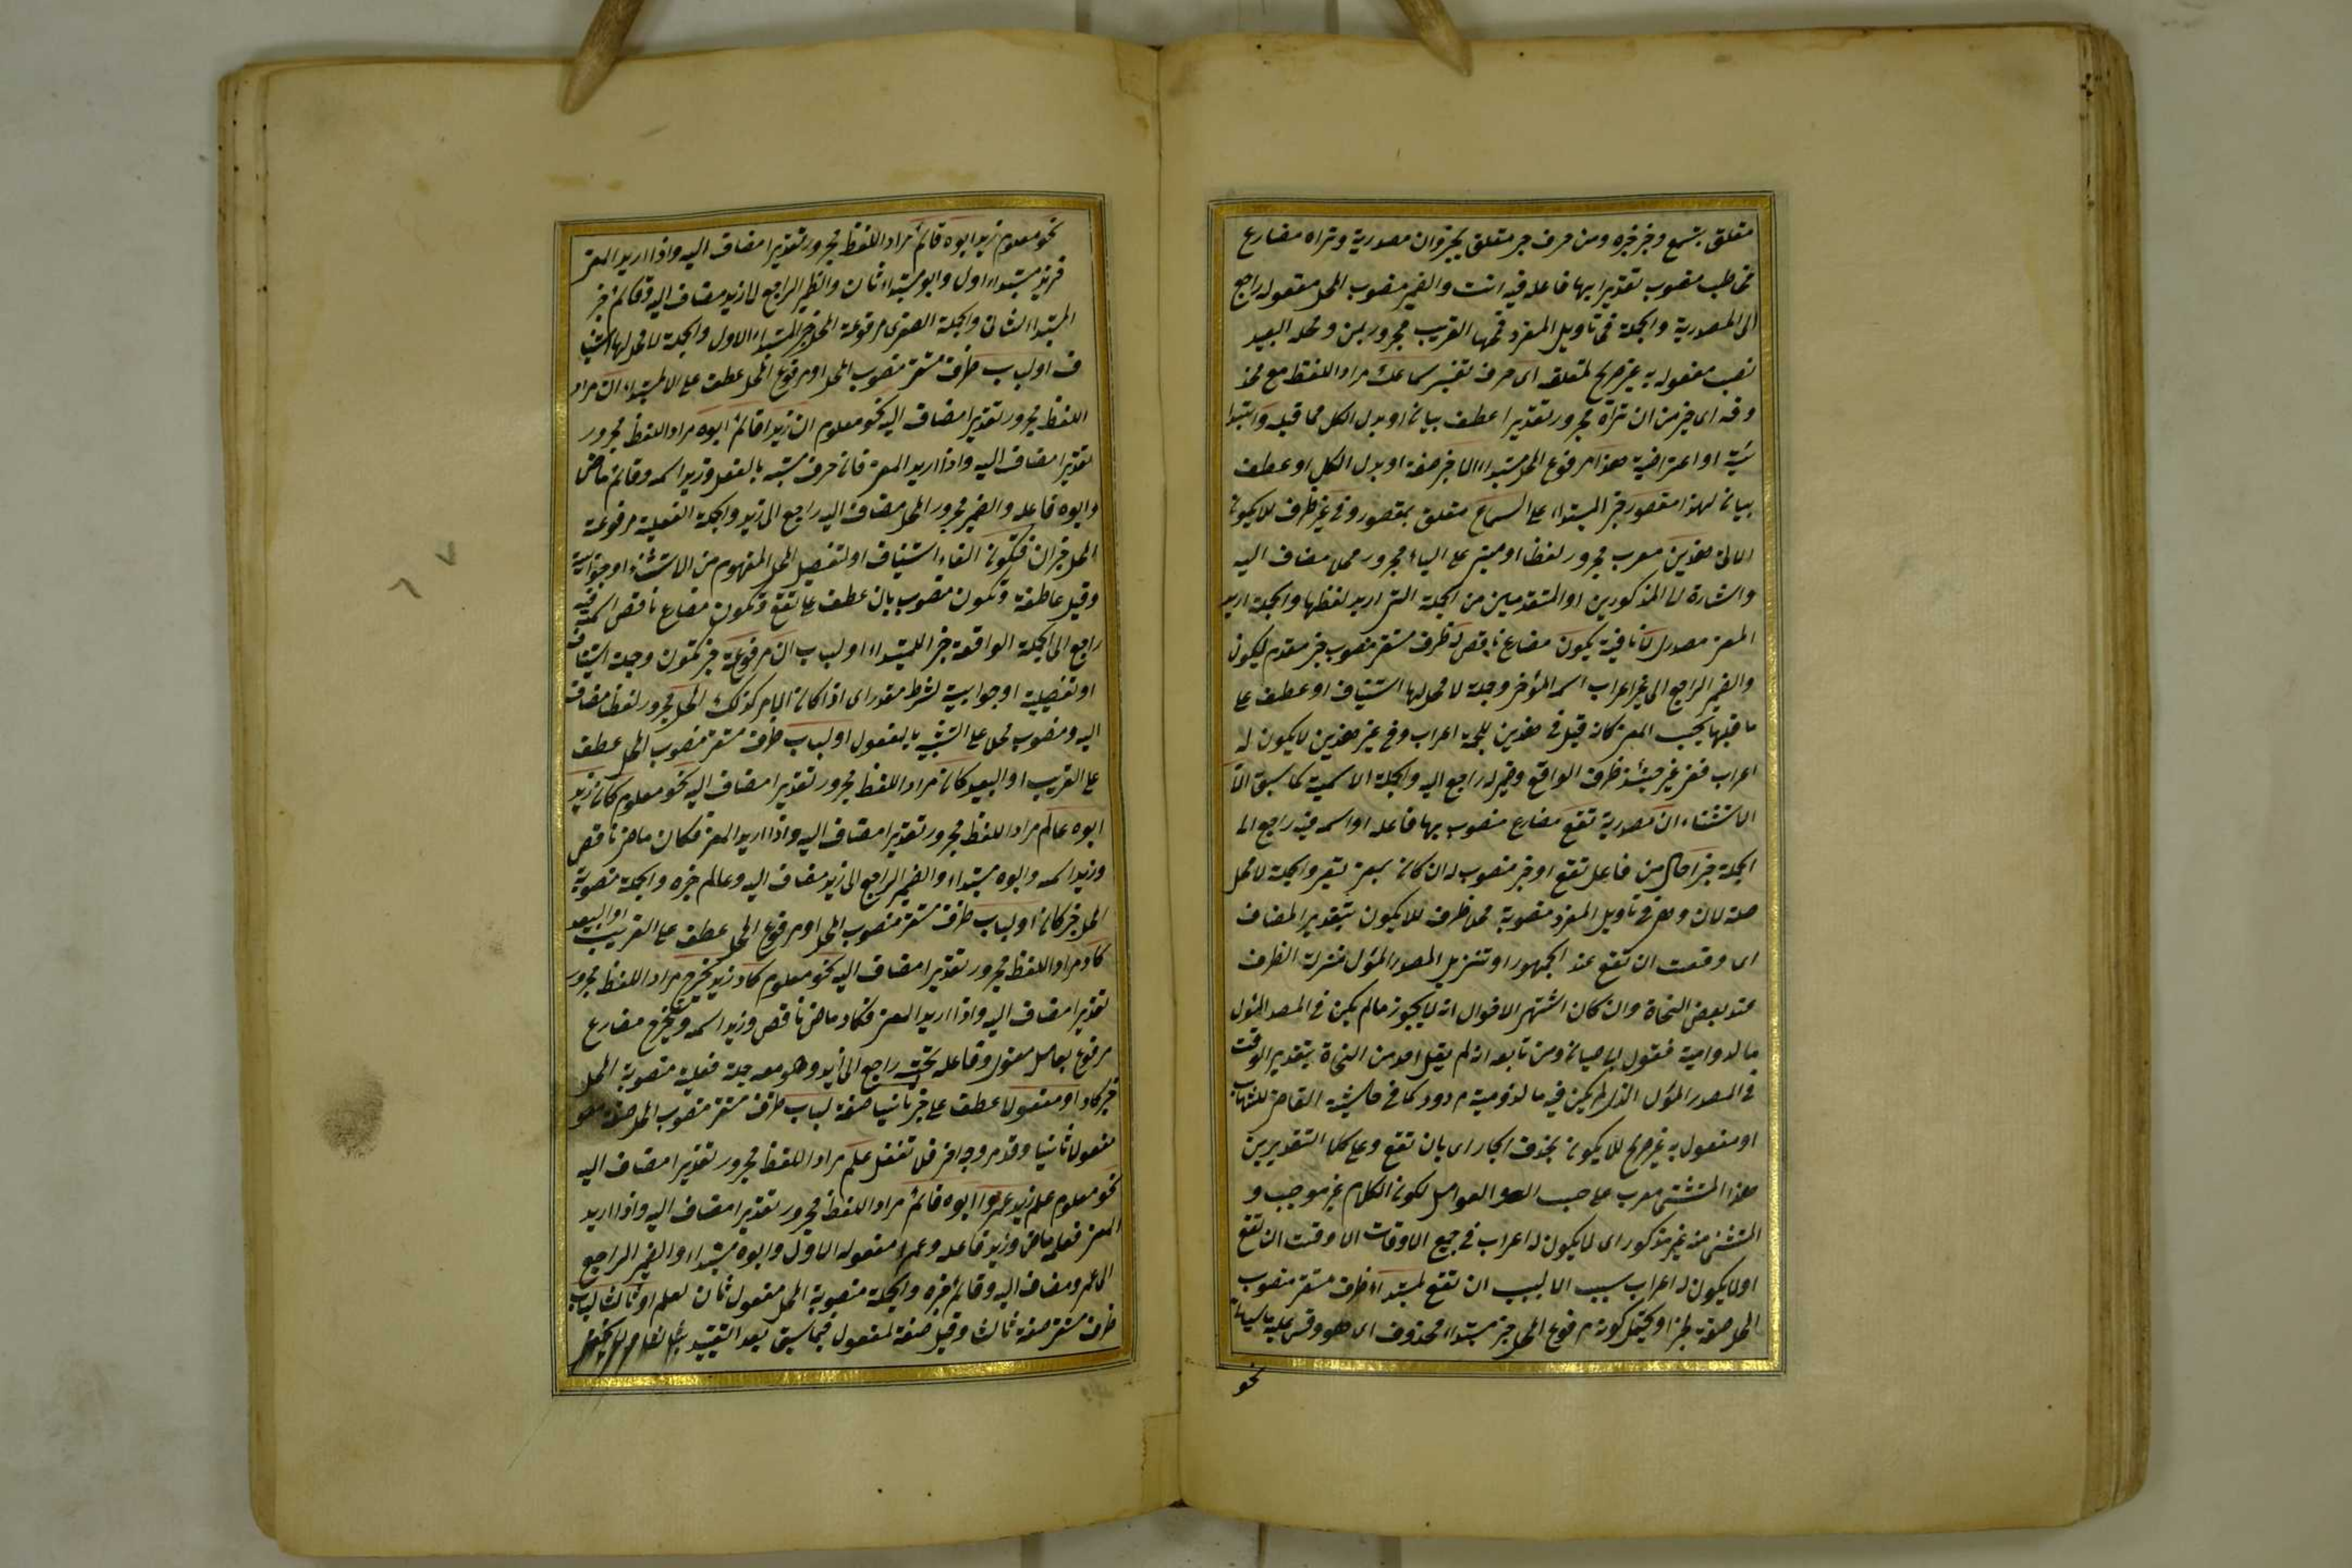 متعلق بتسمع وخبر خبره ومن حرف جر متعلق بخبر وان مصدرية وتراه مضارع
مخاطب منصوب تقديرا بها فاعله فيه انت والضمير منصوب المحل مفعوله راجع
الى المصدرية والجملة في تأويل المفرد فمحلها القريب مجرور بمن ومحله البعيد
نصب مفعول به غير صريح لمتعلقه اى حرف تفسير سماعك مراد اللفظ مع محذ
وفه اى خبر من ان تراه مجرور تقديرا عطف بيان او بدل الكل مما قبله وابتدا
ئية او اعتراضية هذا مرفوع المحل مبتداء الا خبر صفة او بدل الكل او عطف
بيان لهذا مقصور خبر المبتداء على السماع متعلق بمقصور وفي غير ظرف للا يكون
الى هذين معرب مجرور لفظا او مبنى على الياء مجرور محلا مضاف اليه
واشارة الى المذكورين او المتقدمين من الجملة التى اريد لفظها والجملة اريد
المعنى مصدرى لا نافية يكون مضارع ناقص له ظرف مستقر منصوب خبر مقدم ليكون
والضمير الراجع الى غير اعراب اسمه المؤخر وجملة لا محل لها استيناف او عطف على
ما قبلها بحسب المعنى كانه قيل في هذين للجملة اعراب وفي غير هذين لا يكون له
اعراب فغير حينئذ ظرف الواقع وضمير له راجع اليه والجملة الاسمية كما سبق الا
الاستثناء ان مصدرية تقع مضارع منصوب بها فاعله او اسمه فيه راجع الى
الجملة خبرا حال من فاعل تقع او خبر منصوب له ان كان بمعنى تصير والجملة لا محل
صلة لان وهى في تأويل المفرد منصوبة محلا ظرف للا يكون بتقدير المضاف
اى وقت ان تقع عند الجمهور او تنزيل المصدر المؤل منزلة الظرف
عند بعض النحاة وان كان اشتهر الاقوال انه لا يجوز مالم يكن في المصدر المؤل
ما الدوامية فقول ابا حيان ومن تابعه انه لم يقل احد من النحاة بتقدير الوقت
في المصدر المؤل الذى لم يكن فيه ما لدومية مردود كما في حاشية القاضى للشهاب
او مفعول به غير صريح للا يكون بحذف الجار اى بان تقع وعلى كلا التقديرين
هذا المستثنى معرب على حسب العوامل لكون الكلام غير موجب و
المستثنى منه غير مذكور اى لا يكون له اعراب في جميع الاوقات الا وقت ان تقع
او لا يكون له اعراب بسبب الا بسبب ان تقع لمبتداء ظرف مستقر منصوب
المحل صفة لخبرا ويحتمل كونه مرفوع المحل خبر مبتداء محذوف اى هو وقس عليه ما سيأتى
نحو
نحو معلوم زيد ابوه قائم مراد اللفظ مجرور تقديرا مضاف اليه واذا اريد المعنى
فزيد مبتداء اول وابو مبتداء ثان والضمير الراجع الى زيد مضاف اليه وقائم خبر
المبتداء الثانى والجملة الصغرى مرفوعة المحل خبر المبتداء الاول والجملة لا محل لها استينا
ف او لباب ظرف مستقر منصوب المحل او مرفوع المحل عطف على المبتداء ان مراد
اللفظ مجرور تقديرا مضاف اليه نحو معلوم ان زيدا قائم ابوه مراد اللفظ مجرور
تقديرا مضاف اليه واذا اريد المعنى فان حرف مشبه بالفعل وزيدا اسمه وقائم ماض
وابوه فاعله والضمير مجرور المحل مضاف اليه راجع الى زيد والجملة الفعلية مرفوعة
المحل خبر ان فتكون الفاء استيناف او لتفصيل المحل المفهوم من الاستثناء او جوابية
وقيل عاطفة وتكون منصوب بان عطف على تقع وتكون مضارع ناقص اسمه فيه
راجع الى الجملة الواقعة خبر للمبتداء او لباب ان مرفوعة خبر تكون وجملة استيناف
او تفصيلية او جوابية لشرط مقدر اى اذا كان الامر كذلك المحل مجرور لفظا مضاف
اليه ومنصوب محلا على التشبيه بالمفعول او لباب ظرف مستقر منصوب المحل عطف
على القريب او البعيد كان مراد اللفظ مجرور تقديرا مضاف اليه نحو معلوم كان زيد
ابوه عالم مراد اللفظ مجرور تقديرا مضاف اليه واذا اريد المعنى فكان ماض ناقص
وزيد اسمه وابوه مبتداء والضمير الراجع الى زيد مضاف اليه وعالم خبره والجملة منصوبة
المحل خبر كان او لباب ظرف مستقر منصوب المحل او مرفوع المحل عطف على القريب او البعيد
كاد مراد اللفظ مجرور تقديرا مضاف اليه نحو معلوم كاد زيد يخرج مراد اللفظ مجرور
تقديرا مضاف اليه واذا اريد المعنى فكاد ماض ناقص وزيد اسمه ويخرج مضارع
مرفوع بعامل معنوى وفاعله تحته راجع الى زيد وهو معه جملة فعلية منصوبة المحل
خبر كاد او مفعولا عطف على خبر ثانيا صفة لباب ظرف مستقر منصوب المحل صفة
مفعولا ثانيا وقد مر وجه اخر فلا تغفل علم مراد اللفظ مجرور تقديرا مضاف اليه
نحو معلوم علم زيد عمروا ابوه قائم مراد اللفظ مجرور تقديرا مضاف اليه واذا اريد
المعنى فعلم ماض وزيد فاعله وعمروا مفعوله الاول وابوه مبتداء والضمير الراجع
الى عمرو مضاف اليه وقائم خبره والجملة منصوبة المحل مفعول ثان لعلم او ثالثا لباب
ظرف مستقر صفة ثالثا وقيل صفة لمفعول فيما سبق بعد التقييد